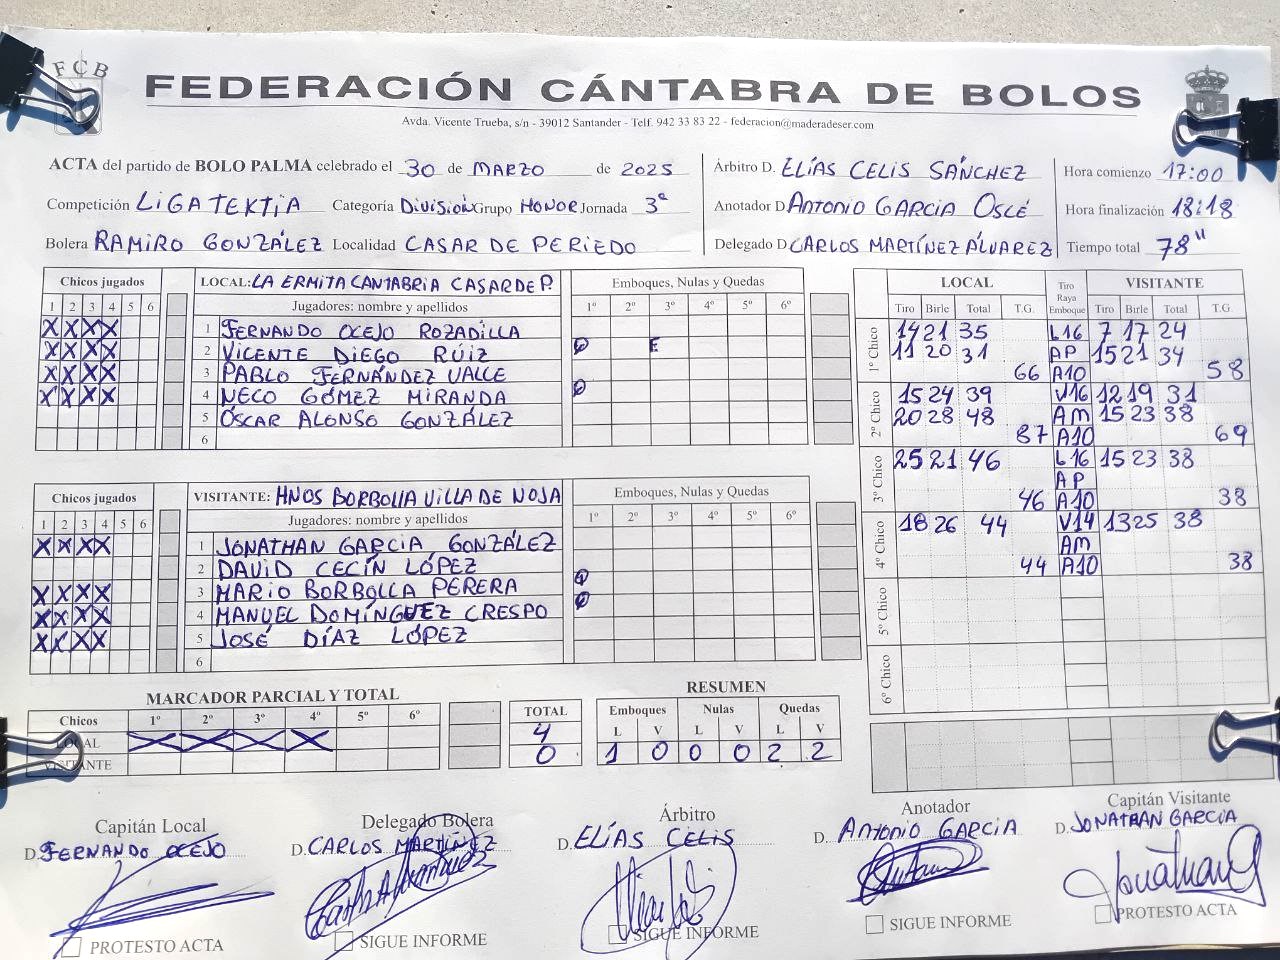 FCB
FEDERACIÓN CÁNTABRA DE BOLOS
Avda. Vicente Trueba, s/n - 39012 Santander - Telf. 942 33 83 22 - federacion@maderadeser.com
ACTA del partido de BOLO PALMA celebrado el 30 de MARZO de 2025
Competición LIGA TEKTIA Categoría DIVISIÓN Grupo HONOR Jornada 3ª
Bolera RAMIRO GONZÁLEZ Localidad CASAR DE PERIEDO
Árbitro D. ELÍAS CELIS SÁNCHEZ
Anotador D. ANTONIO GARCIA OSLÉ
Delegado D. CARLOS MARTÍNEZ ÁLVAREZ
Hora comienzo 17:00
Hora finalización 18:18
Tiempo total 78"
Chicos jugados LOCAL: LA ERMITA CANTABRIA CASAR DE P. Emboques, Nulas y Quedas
1 2 3 4 5 6 Jugadores: nombre y apellidos 1º 2º 3º 4º 5º 6º
X X X X 1 FERNANDO OCEJO ROZADILLA
X X X X 2 VICENTE DIEGO RÚIZ Q E
X X X X 3 PABLO FERNÁNDEZ VALLE
X X X X 4 NECO GÓMEZ MIRANDA Q
5 ÓSCAR ALONSO GONZÁLEZ
6
Chicos jugados VISITANTE: HNOS BORBOLLA VILLA DE NOJA Emboques, Nulas y Quedas
1 2 3 4 5 6 Jugadores: nombre y apellidos 1º 2º 3º 4º 5º 6º
X X X X 1 JONATHAN GARCIA GONZÁLEZ
2 DAVID CECÍN LÓPEZ
X X X X 3 MARIO BORBOLLA PERERA Q
X X X X 4 MANUEL DOMÍNGUEZ CRESPO Q
X X X X 5 JOSÉ DÍAZ LÓPEZ
6
LOCAL Tiro Raya Emboque VISITANTE
Tiro Birle Total T.G. Tiro Birle Total T.G.
1º Chico 14 21 35 L16 7 17 24
11 20 31 AP 15 21 34
66 A10 58
2º Chico 15 24 39 V16 12 19 31
20 28 48 AM 15 23 38
87 A10 69
3º Chico 25 21 46 L16 15 23 38
AP
46 A10 38
4º Chico 18 26 44 V14 13 25 38
AM
44 A10 38
5º Chico
6º Chico
MARCADOR PARCIAL Y TOTAL
Chicos 1º 2º 3º 4º 5º 6º TOTAL
LOCAL X X X X 4
VISITANTE 0
RESUMEN
Emboques Nulas Quedas
L V L V L V
1 0 0 0 2 2
Capitán Local
D. FERNANDO OCEJO
PROTESTO ACTA
Delegado Bolera
D. CARLOS MARTÍNEZ
SIGUE INFORME
Árbitro
D. ELÍAS CELIS
SIGUE INFORME
Anotador
D. ANTONIO GARCIA
SIGUE INFORME
Capitán Visitante
D. JONATHAN GARCIA
PROTESTO ACTA